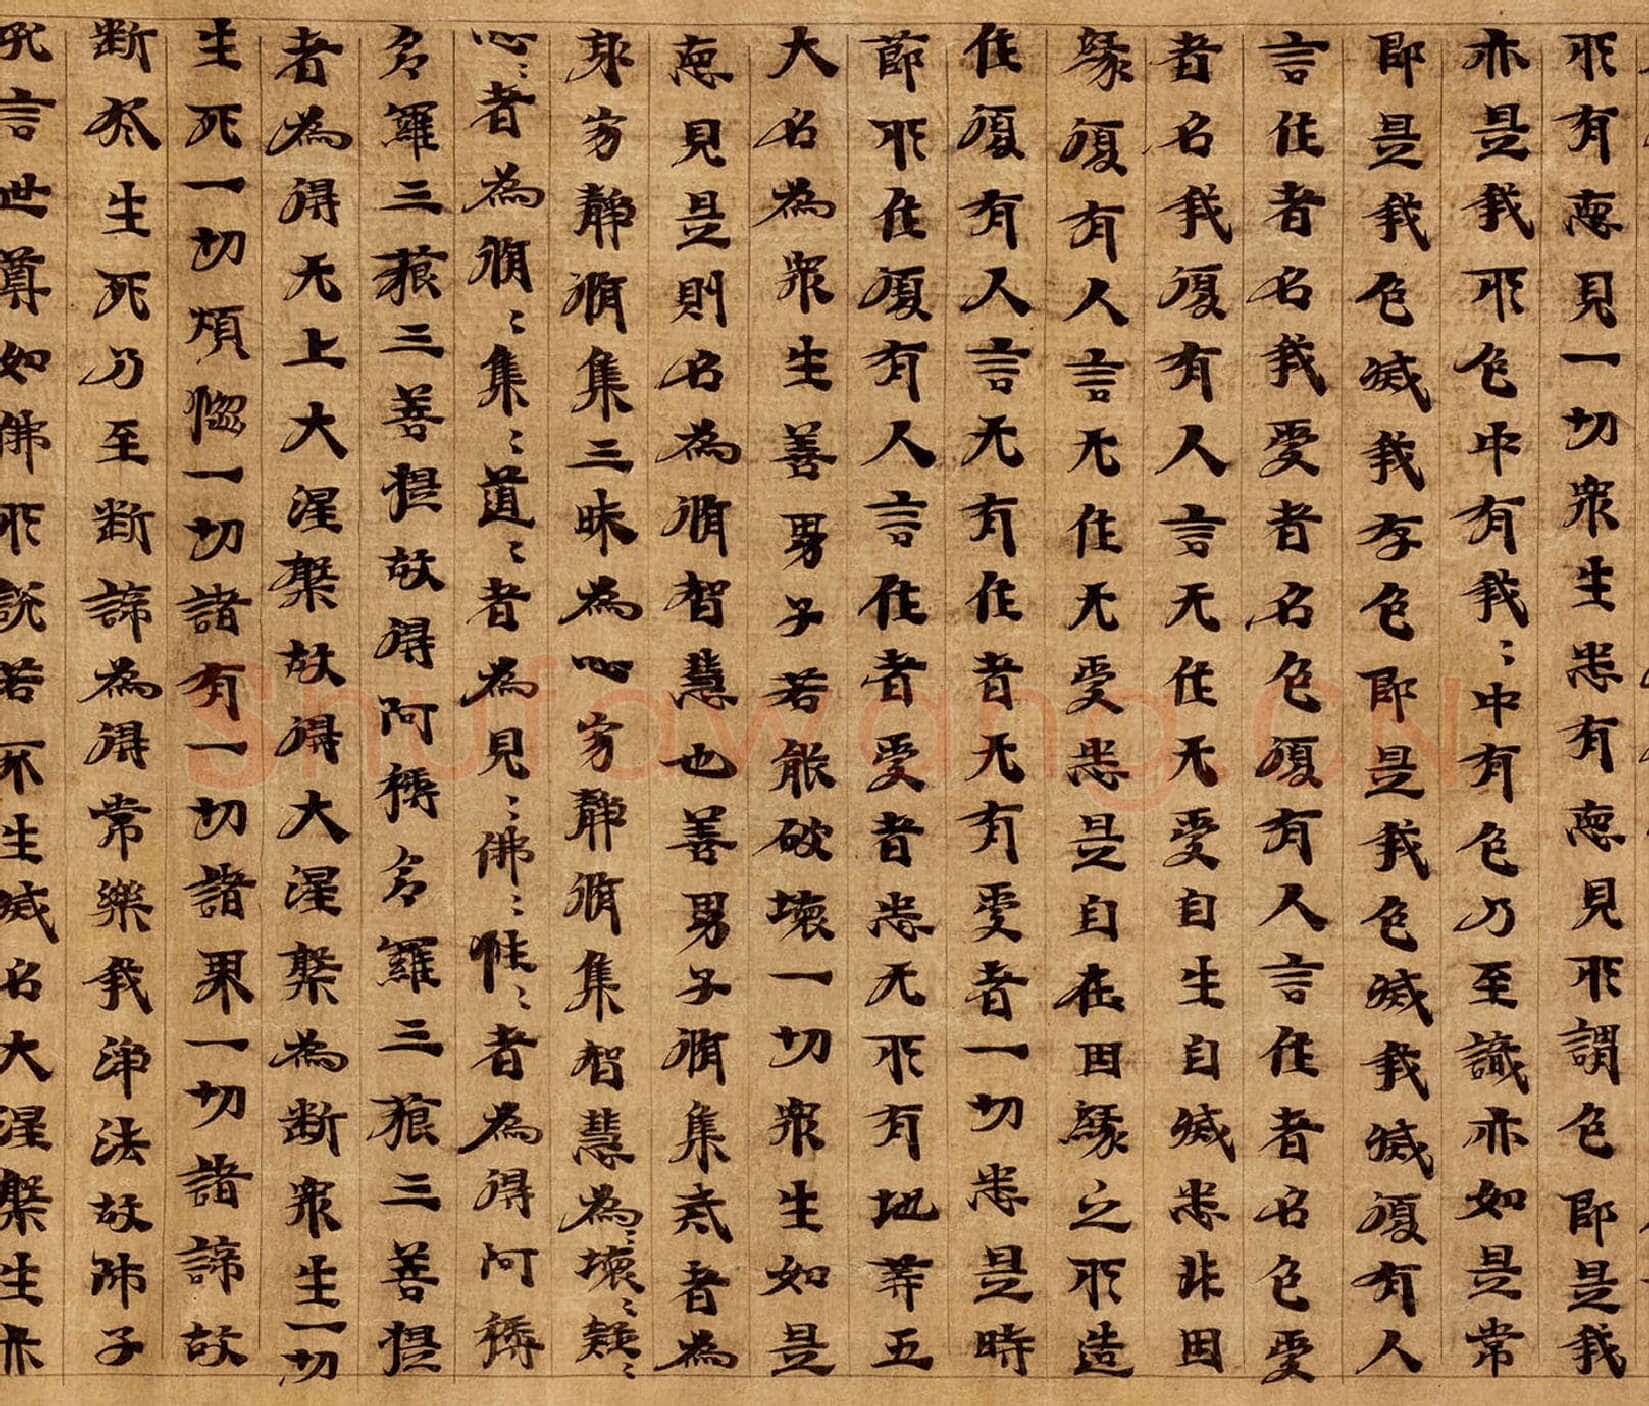 所有惡見一切眾生悉有惡見所謂色即是我
亦是我所色中有我〻中有色乃至識亦如是常
即是我色滅我存色即是我色滅我滅復有人
言住者名我受者名色復有人言住者名色受
者名我復有人言无住无受自生自滅悉非因
緣復有人言无住无受悉是自在因緣之所造
住復有人言无有住者无有受者一切悉是時
節所住復有人言住者受者悉无所有地等五
大名為眾生善男子若能破壞一切眾生如是
惡見是則名為脩智慧也善男子脩集戒者為
身寂靜脩集三昧為心寂靜脩集智慧為〻壞〻疑〻
心〻者為脩〻集〻道〻者為見〻佛〻性〻者為得阿耨
多羅三藐三菩提故得阿耨多羅三藐三菩提
者為得无上大涅槃故得大涅槃為斷眾生一切
生死一切煩惱一切諸有一切諸界一切諸諦故
斷於生死乃至斷諦為得常樂我淨法故師子
吼言世尊如佛所說若不生滅名大涅槃生亦
Shufawang.CN